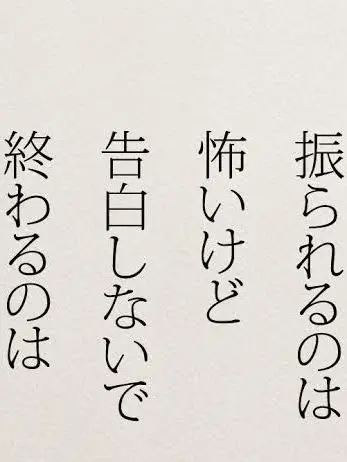 振られるのは
怖いけど
告白しないで
終わるのは